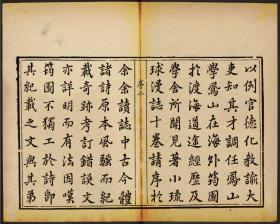 以例官德化教諭大
吏知其才調任鳳山
學鳳山在海外筠園
於渡海道逕經歷及
學舍所聞見著小琉
球漫誌十卷請序於
序二
余余讀誌中古今體
諸詩原本風騷而紀
載奇跡考訂錯誤文
亦詳明而有法因嘆
筠園不獨工於詩即
其紀載之文與其弟